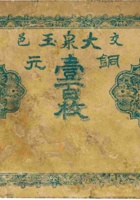 大泉玉邑
銅元
壹百枚